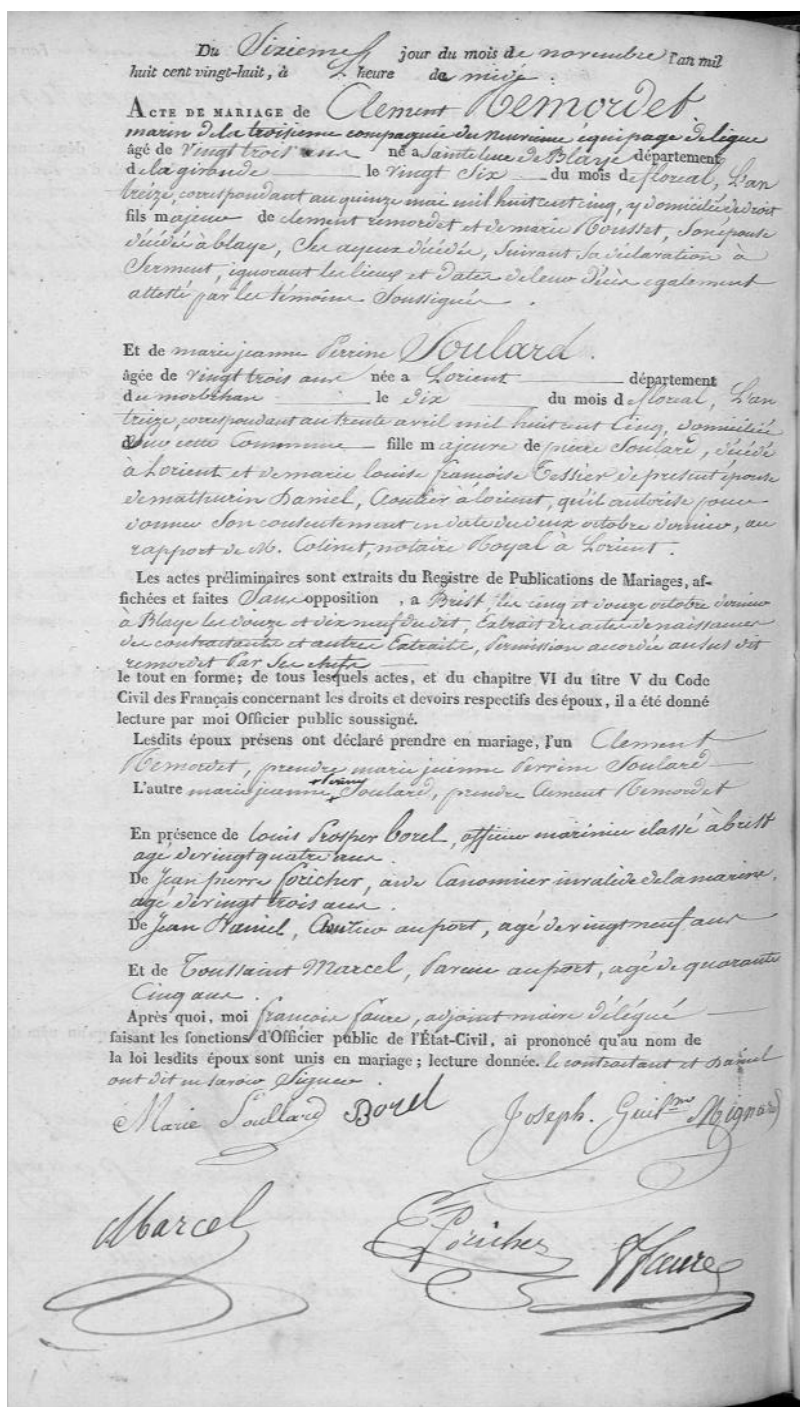 Du Sixieme jour du mois de novembre l'an mil
huit cent vingt-huit, à L' heure de midi.
ACTE DE MARIAGE de Clement Remordet.
marin de la troisieme compagnie du neuvieme équipage de ligne
âgé de vingt trois ans né a Sainte luce de Blaye département
de la gironde le vingt Six du mois de floreal, L'an
treize, correspondant au quinze mai mil huit cent cinq, y domicilié de droit
fils majeur de clement remordet et de marie Rousset, Son épouse
décédés à blaye, Ses ayeux décédés, Suivant Sa déclaration à
Serment, ignorant les lieux et dates de leur décès egalement
attesté par les témoins Soussignés.
Et de marie jeanne Perrine Soulard.
âgée de vingt trois ans née a Lorient département
du morbihan le dix du mois de floreal, L'an
treize, correspondant au trente avril mil huit cent Cinq, domiciliée
sur cette Commune fille majeure de pierre Soulard, décédé
à Lorient et de marie louise françoise Tessier de present épouse
de mathurin Daniel, Coutier à lorient, qu'il autorise pour
donner Son consentement en date du deux octobre dernier, au
rapport de M. Colinet, notaire Royal à Lorient.
Les actes préliminaires sont extraits du Registre de Publications de Mariages, af-
fichées et faites Sans opposition, a Brest, les cinq et douze octobre dernier
à Blaye les douze et dix neuf du dit, Extrait des actes de naissances
des contractants et autres Extraits, Permission accordée au sus dit
remordet Par Ses chefs
le tout en forme; de tous lesquels actes, et du chapitre VI du titre V du Code
Civil des Français concernant les droits et devoirs respectifs des époux, il a été donné
lecture par moi Officier public soussigné.
Lesdits époux présens ont déclaré prendre en mariage, l'un Clement
Remordet, prendre marie jeanne Perrine Soulard
L'autre marie jeanne + Perrine + Soulard, prendre Clement Remordet
En présence de Louis Prosper Borel, officier marinier classé à brest
agé de vingt quatre ans.
De Jean pierre foricher, aide Canonnier invalide de la marine,
agé de vingt trois ans.
De Jean Daniel, au port, agé de vingt neuf ans
Et de Toussaint Marcel, au port, agé de quarante
Cinq ans.
Après quoi, moi françois faure, adjoint maire délégué
faisant les fonctions d'Officier public de l'État-Civil, ai prononcé qu'au nom de
la loi lesdits époux sont unis en mariage; lecture donnée. le contractant et Daniel
ont dit ne savoir Signer.
Marie Soullard Borel Joseph. Guil^me Mignard
Marcel Foricher Faure